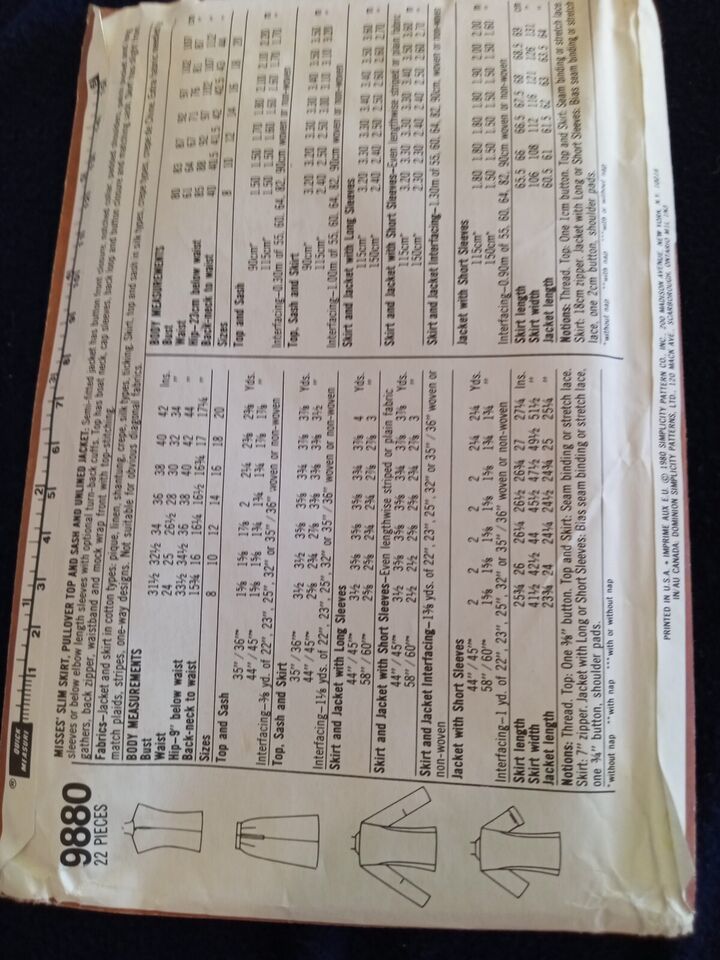 QUICK MEASURE
1 2 3 4 5 6 7
9880
22 PIECES
MISSES' SLIM SKIRT, PULLOVER TOP AND SASH AND UNLINED JACKET: Semi-fitted jacket has button front closure, notched collar,
sleeves or below elbow length sleeves with optional turn-back cuffs. Top has boat neck, cap sleeves, back loop and button closure and
gathers, back zipper, waistband and mock wrap front with top-stitching.
Fabrics—Jacket and skirt in cotton types: pique, linen, shantung, crepe, silk types, ticking. Skirt, top and sash in silk types, crepe types, crepe de Chine. Extra fabric needed to
match plaids, stripes, one-way designs. Not suitable for obvious diagonal fabrics.
BODY MEASUREMENTS
Bust 31½ 32½ 34 36 38 40 42 Ins.
Waist 24 25 26½ 28 30 32 34 "
Hip—9" below waist 33½ 34½ 36 38 40 42 44 "
Back-neck to waist 15¾ 16 16¼ 16½ 16¾ 17 17¼ "
Sizes 8 10 12 14 16 18 20
Top and Sash
35"/36" 1⅝ 1⅝ 1⅞ 2 2¼ 2⅜ 2⅜ Yds.
44"/45" 1⅝ 1⅝ 1¾ 1¾ 1¾ 1⅞ 1⅞ "
Interfacing—⅜ yd. of 22", 23", 25", 32" or 35"/36" woven or non-woven
Top, Sash and Skirt
35"/36" 3½ 3½ 3⅝ 3⅝ 3¾ 3⅞ 3⅞ Yds.
44"/45" "
Interfacing—1⅛ yds. of 22", 23", 25", 32" or 35"/36" woven or non-woven
Skirt and Jacket with Long Sleeves
44"/45" 3½ 3⅝ 3⅝ 3⅝ 3¾ 3⅞ 4 Yds.
58"/60" 2⅝ 2⅝ 2¾ 2¾ 2⅞ 2⅞ 3 "
Skirt and Jacket with Short Sleeves—Even lengthwise striped or plain fabric
44"/45" 3½ 3⅝ 3⅝ 3⅝ 3¾ 3⅞ 3⅞ Yds.
58"/60" "
Skirt and Jacket Interfacing—1⅜ yds. of 22", 23", 25", 32" or 35"/36" woven or
non-woven
Jacket with Short Sleeves
44"/45" 2 2 2 2 2 2¼ 2¼ Yds.
58"/60" 1⅝ 1⅝ 1⅝ 1⅝ 1⅝ 1¾ 1¾ "
Interfacing—1 yd. of 22", 23", 25", 32" or 35"/36" woven or non-woven
Skirt length 25¾ 26 26¼ 26½ 26¾ 27 27¼ Ins.
Skirt width 41½ 42½ 44 45½ 47½ 49½ 51½ "
Jacket length 23¾ 24 24¼ 24½ 24¾ 25 25¼ "
Notions: Thread. Top: One ⅜" button. Top and Skirt: Seam binding or stretch lace.
Skirt: 7" zipper. Jacket with Long or Short Sleeves: Bias seam binding or stretch lace,
one ¾" button, shoulder pads.
*without nap **with nap ***with or without nap
BODY MEASUREMENTS
Bust 80 83 87 92 97 102 107 cm
Waist 61 64 67 71 76 81 87 "
Hip—23cm below waist 85 88 92 97 102 107 112 "
Back-neck to waist 40 40.5 41.5 42 42.5 43 44 "
Sizes 8 10 12 14 16 18 20
Top and Sash
90cm* 1.50 1.50 1.70 1.80 2.10 2.10 2.20 m
115cm* 1.50 1.50 1.50 1.60 1.60 1.70 1.70 "
Interfacing—0.30m of 55, 60, 64, 82, 90cm woven or non-woven
Top, Sash and Skirt
90cm* 3.20 3.20 3.30 3.30 3.40 3.50 3.50 m
115cm*
Interfacing—1.00m of 55, 60, 64, 82, 90cm woven or non-woven
Skirt and Jacket with Long Sleeves
115cm* 3.20 3.30 3.30 3.30 3.40 3.50 3.60 m
150cm* 2.40 2.40 2.50 2.50 2.60 2.60 2.70 "
Skirt and Jacket with Short Sleeves—Even lengthwise striped or plain fabric
115cm* 3.20 3.30 3.30 3.30 3.40 3.50 3.60 m
150cm*
Skirt and Jacket Interfacing—1.30m of 55, 60, 64, 82, 90cm woven or non-woven
Jacket with Short Sleeves
115cm* 1.80 1.80 1.80 1.80 1.90 2.00 2.00 m
150cm* 1.50 1.50 1.50 1.50 1.50 1.50 1.60 "
Interfacing—0.90m of 55, 60, 64, 82, 90cm woven or non-woven
Skirt length 65.5 66 66.5 67.5 68 68.5 69 cm
Skirt width 106 108 112 116 121 126 131 "
Jacket length 60.5 61 61.5 62 63 63.5 64 "
Notions: Thread. Top: One 1cm button. Top and Skirt: Seam binding or stretch lace.
Skirt: 18cm zipper. Jacket with Long or Short Sleeves: Bias seam binding or stretch
lace, one 2cm button, shoulder pads.
*without nap **with nap ***with or without nap
PRINTED IN U.S.A. • IMPRIME AUX E.U. © 1980 SIMPLICITY PATTERN CO. INC. 200 MADISON AVENUE, NEW YORK, N.Y. 10016
IN/AU CANADA: DOMINION SIMPLICITY PATTERNS, LTD. 120 MACK AVE. SCARBOROUGH, ONTARIO M1L 1N3